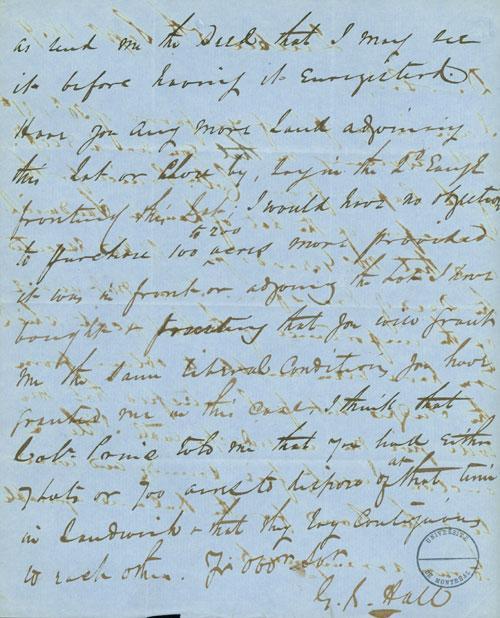 as send me the Deed that I may see
it before having it Enregisterd.
Have you any more Land adjoining
this Lot or Close by, say in the 2d Range
fronting this Lot. I would have no objection
to 200
to purchase 100 acres more provided
it was in front or adjoing the Lot I have
bought & that you will grant
me the same liberal Conditions you have
granted me in this case. I think that
Col. Prince told me that you had either
at
7 Lots or 700 acres to dispose of that time
in Sandwich & that they lay Contiguous
to each other. Yr Obdt Svt
G. Hall
UNIVERSITÉ
DE MONTRÉAL